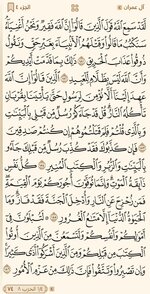 آل عمران الجزء ٤
لَّقَدْ سَمِعَ ٱللَّهُ قَوْلَ ٱلَّذِينَ قَالُوٓا۟ إِنَّ ٱللَّهَ فَقِيرٌ وَنَحْنُ أَغْنِيَآءُ
سَنَكْتُبُ مَا قَالُوا۟ وَقَتْلَهُمُ ٱلْأَنۢبِيَآءَ بِغَيْرِ حَقٍّ وَنَقُولُ
ذُوقُوا۟ عَذَابَ ٱلْحَرِيقِ ١٨١ ذَٰلِكَ بِمَا قَدَّمَتْ أَيْدِيكُمْ
وَأَنَّ ٱللَّهَ لَيْسَ بِظَلَّامٍ لِّلْعَبِيدِ ١٨٢ ٱلَّذِينَ قَالُوٓا۟ إِنَّ ٱللَّهَ
عَهِدَ إِلَيْنَآ أَلَّا نُؤْمِنَ لِرَسُولٍ حَتَّىٰ يَأْتِيَنَا بِقُرْبَانٍ
تَأْكُلُهُ ٱلنَّارُ قُلْ قَدْ جَآءَكُمْ رُسُلٌ مِّن قَبْلِى بِٱلْبَيِّنَٰتِ
وَبِٱلَّذِى قُلْتُمْ فَلِمَ قَتَلْتُمُوهُمْ إِن كُنتُمْ صَٰدِقِينَ
١٨٣ فَإِن كَذَّبُوكَ فَقَدْ كُذِّبَ رُسُلٌ مِّن قَبْلِكَ جَآءُو
بِٱلْبَيِّنَٰتِ وَٱلزُّبُرِ وَٱلْكِتَٰبِ ٱلْمُنِيرِ ١٨٤ كُلُّ نَفْسٍ
ذَآئِقَةُ ٱلْمَوْتِ وَإِنَّمَا تُوَفَّوْنَ أُجُورَكُمْ يَوْمَ ٱلْقِيَٰمَةِ
فَمَن زُحْزِحَ عَنِ ٱلنَّارِ وَأُدْخِلَ ٱلْجَنَّةَ فَقَدْ فَازَ وَمَا
ٱلْحَيَوٰةُ ٱلدُّنْيَآ إِلَّا مَتَٰعُ ٱلْغُرُورِ ١٨٥ لَتُبْلَوُنَّ فِىٓ
أَمْوَٰلِكُمْ وَأَنفُسِكُمْ وَلَتَسْمَعُنَّ مِنَ ٱلَّذِينَ أُوتُوا۟
ٱلْكِتَٰبَ مِن قَبْلِكُمْ وَمِنَ ٱلَّذِينَ أَشْرَكُوٓا۟ أَذًى كَثِيرًا
وَإِن تَصْبِرُوا۟ وَتَتَّقُوا۟ فَإِنَّ ذَٰلِكَ مِنْ عَزْمِ ٱلْأُمُورِ ١٨٦
الحزب ٨ ٧٤